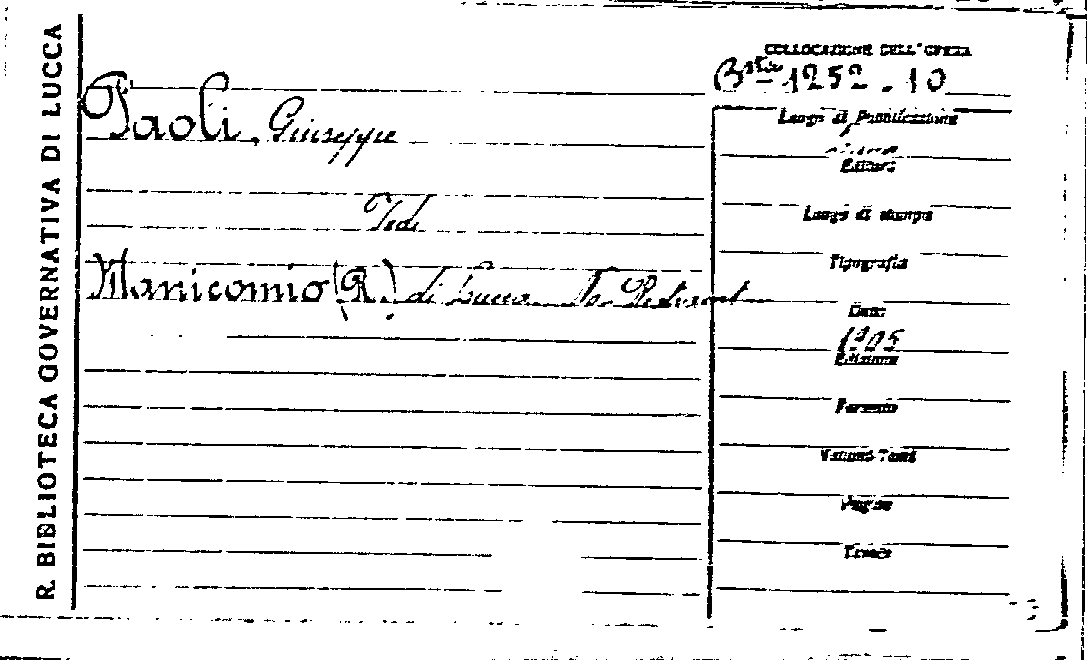 R. BIBLIOTECA GOVERNATIVA DI LUCCA
COLLOCAZIONE DELL'OPERA
Bta 1252.10
Paoli, Giuseppe
Vedi
Manicomio (R.) di Lucca
Luogo di Pubblicazione
Editore
Luogo di stampa
Tipografia
Data
1905
Edizione
Formato
Volumi Tomi
Pagine